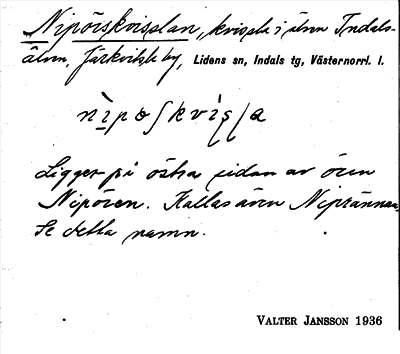 Nipörskvisslan, kvissle i älven Indals-
älven, Järkvitsle by, Lidens sn, Indals tg, Västernorrl. l.
Ligger på östra sidan av ören
Nipören. Kallas även Niprännan.
Se detta namn.
VALTER JANSSON 1936